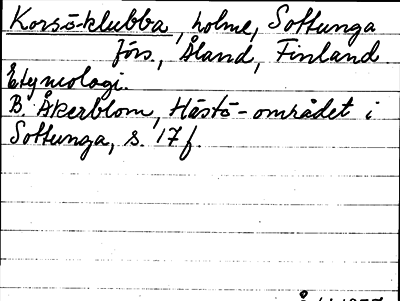 Korsö-klubba, holme, Sottunga
förs., Åland, Finland
Etymologi.
B. Åkerblom, Hästö-området i
Sottunga, s. 17 f.